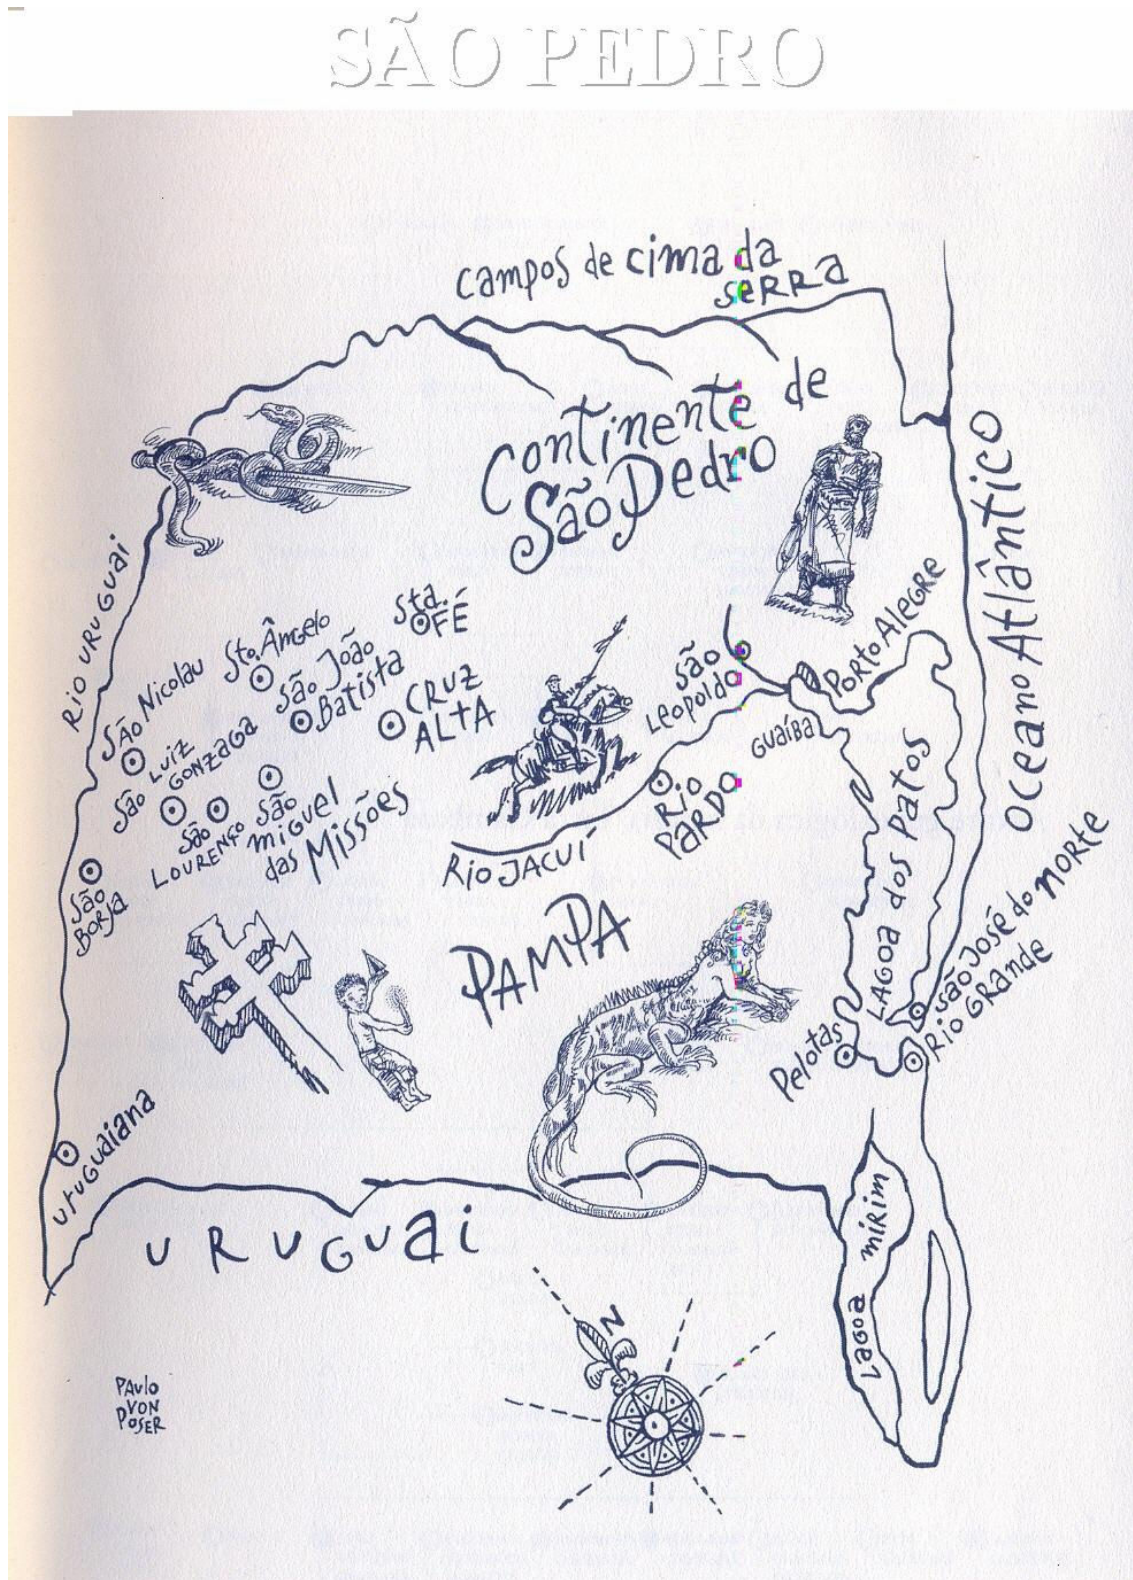 SÃO PEDRO
Campos de cima da
SERRA
Continente de
São Pedro
Rio URUGUAI
Oceano Atlântico
Sta. FÉ
Sto. Ângelo
São João
Batista
São Nicolau
CRUZ
ALTA
São LUIZ
GONZAGA
São
LOURENÇO
São
miguel
das Missões
São
BORJA
São
Leopoldo
PORTO ALEGRE
Guaíba
RIO
PARDO
Rio JACUÍ
LAGOA dos Patos
PAMPA
São José do NORTE
RIO GRANDE
Pelotas
uruguaiana
URUGUAI
Lagoa mirim
N
PAulo
VON
POSER